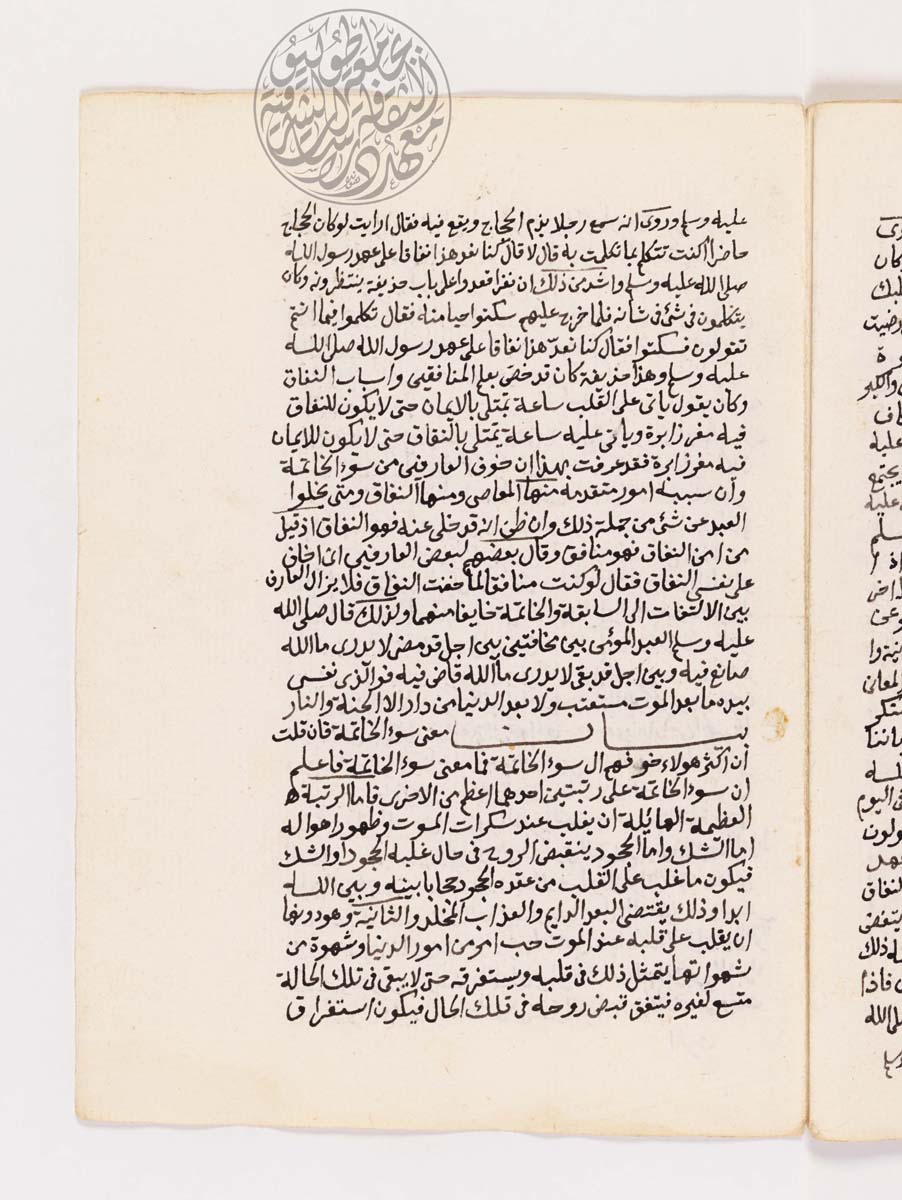 عليه وسلم وروى انه سمع رجلا يذم الحجاج ويقع فيه فقال ارايت لو كان الحجاج
حاضرا اكنت تتكلم بما تكلمت به قال لا قال كنا نعد هذا نفاقا على عهد رسول الله
صلى الله عليه وسلم واشد من ذلك ان نفرا قعدوا على باب حذيفة ينتظرونه وكان
يتكلمون فى شئ فى شانه فلما خرج عليهم سكتوا حيا منه فقال تكلموا فيما انتم
تقولون فسكتوا فقال كنا نعد هذا نفاقا على عهد رسول الله صلى الله
عليه وسلم وهذا حذيفة كان قد خص بعلم المنافقين واسباب النفاق
وكان يقول ياتى على القلب ساعة يمتلى بالايمان حتى لا يكون للنفاق
فيه مغرز ابرة وياتى عليه ساعة يمتلى بالنفاق حتى لا يكون للايمان
فيه مغرز ابرة فقد عرفت بهذا ان خوف العارفين من سوء الخاتمة
وان سببه امور متقدمة منها المعاصى ومنها النفاق ومتى يخلوا
العبد عن شئ من جملة ذلك وان ظن انه قد خلى عنه فهو النفاق اذ قيل
من امن النفاق فهو منافق وقال بعضهم لبعض العارفين انى اخاف
على نفسى النفاق فقال لو كنت منافقا لما خفت النفاق فلا يزال العارف
بين الالتفات الى السابقة والخاتمة خايفا منهما ولذلك قال صلى الله
عليه وسلم العبد المومن بين مخافتين بين اجل قد مضى لا يدرى ما الله
صانع فيه وبين اجل قد بقى لا يدرى ما الله قاض فيه فو الذى نفسى
بيده ما بعد الموت مستعتب ولا بعد الدنيا من دار الا الجنة والنار
بيان معنى سوء الخاتمة فان قلت
ان اكثر هولاء خوفهم ال سوء الخاتمة فما معنى سوء الخاتمة فاعلم
ان سوء الخاتمة على رتبتين احدهما اعظم من الاخرى فاما الرتبة
العظيمة الهائلة ان يغلب عند سكرات الموت وظهور اهواله
اما الشك واما الجحود ينقبض الروح فى حال غلبه الجحود او الشك
فيكون ما غلب على القلب من عقده الجحود حجابا بينه وبين الله
ابدا وذلك يقتضى البعد الدايم والعذاب المخلد والثانية وهو دونها
ان يغلب على قلبه عند الموت حب امر من امور الدنيا وشهوة من
شهواتها يتمثل ذلك فى قلبه ويستغرقه حتى لا يبقى فى تلك الحالة
متسع لغيره فيتفق قبض روحه فى تلك الحال فيكون استغراق